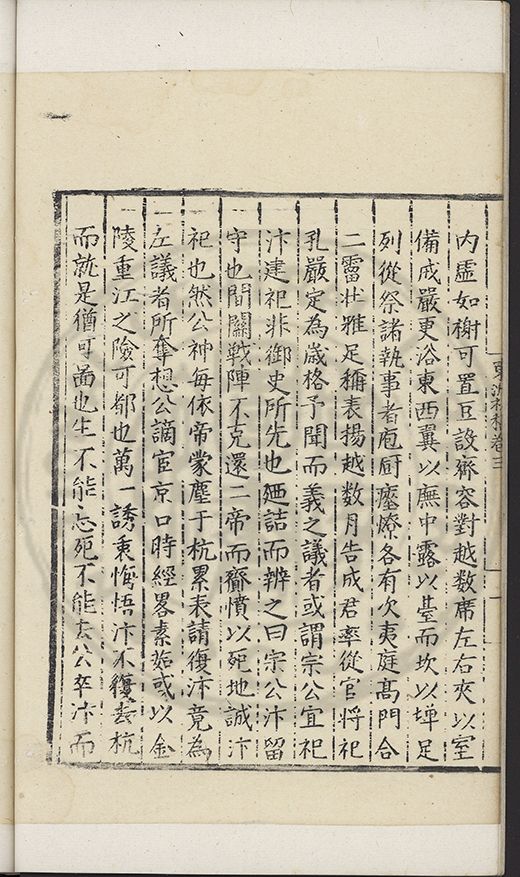 内虛如榭可置豆設齋容對越数席左右夾以室
備戒嚴更浴東西翼以廡中露以䑓而坎以墠足
列從祭諸執事者庖厨瘞燎各有次夷庭髙門合
二䨓壮雅足稱表揚越数月告成君率從官将祀
孔嚴定為歲格予聞而義之議者或謂宗公宜祀
汴建祀非御史所先也廼詰而辨之曰宗公汴留
守也間關戰陣不克還二帝而齎憤以死地誠汴
祀也然公神每依帝蒙塵于杭累表請復汴竟為
左議者所奪想公謫宦京口時經畧素姤或以金
陵重江之險可都也萬一誘衷悔悟汴不復去杭
而就是猶可啚也生不能忘死不能去公卒汴而
卷三